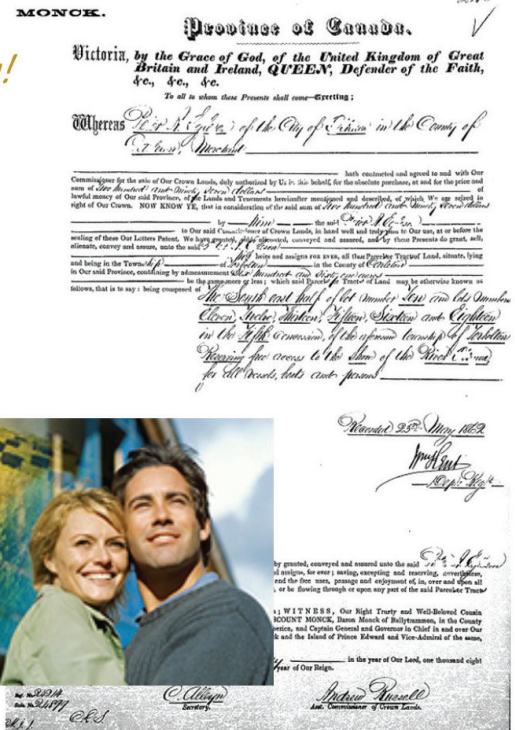 MONCK.
Province of Canada.
Victoria, by the Grace of God, of the United Kingdom of Great
Britain and Ireland, QUEEN, Defender of the Faith,
&c., &c., &c.
To all to whom these Presents shall come—Greeting;
Whereas of the City of in the County of
Merchant
hath contracted and agreed to and with Our
Commissioner for the sale of Our Crown Lands, duly authorized by Us in this behalf, for the absolute purchase, at and for the price and
sum of Two Hundred and Ninety Seven dollars of
lawful money of our said Province, of the Lands and Tenements hereinafter mentioned and described, of which We are seized in
right of Our Crown. NOW KNOW YE, that in consideration of the said sum of Two Hundred and Ninety Seven dollars
by him the said
to Our said Commissioner of Crown Lands, in hand well and truly paid to Our use, at or before the
sealing of these Our Letters Patent, We have granted, sold, alienated, conveyed and assured, and by these Presents do grant, sell,
alienate, convey and assure, unto the said
heirs and assigns for EVER, all those Parcels or Tracts of Land, situate, lying
and being in the Township of Torbolton in the County of Carleton
in Our said Province, containing by admeasurement Six Hundred and Sixty
be the same more or less; which said Parcels or Tracts of Land may be otherwise known as
follows, that is to say: being composed of
The South east half of lot number Ten and lots Numbers
Eleven, Twelve, Thirteen, Fifteen, Sixteen and Eighteen
in the Fifth concession, of the aforesaid township of Torbolton
Reserving free access to the Shore of the River
for all vessels, boats and persons
Recorded 23rd May 1862
Wm Kent
Dep. Regr.
by granted, conveyed and assured unto the said
assigns, for ever; saving, excepting and reserving, nevertheless,
and the free uses, passage and enjoyment of, in, over and upon all
or be flowing through or upon any part of the said Parcels or Tracts
; WITNESS, Our Right Trusty and Well-Beloved Cousin
COUNT MONCK, Baron Monck of Ballytrammon, in the County
erica, and Captain General and Governor in Chief in and over Our
k and the Island of Prince Edward and Vice-Admiral of the same,
in the year of Our Lord, one thousand eight
year of Our Reign.
C. Alleyn
Secretary.
Andrew Russell
Asst. Commissioner of Crown Lands.